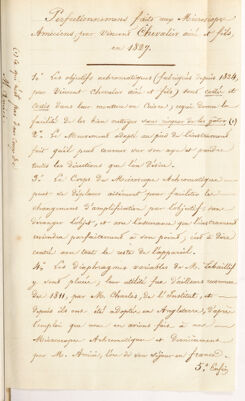 Perfectionnements faits aux Microscopes
Amiciens par Vincent Chevalier ainé et fils,
en 1827.
1.° Les objectifs achromatiques (fabriqués depuis 1824,
par Vincent Chevalier ainé et fils) sont collés et
dans leur monture en cuivre; ce qui donne la
facilité de les bien nettoyer sans risquer de les gâter (1)
2.° Le Mouvement adapté au pied de l'instrument
fait qu'il peut tourner sur son axe et prendre
toutes les directions que l'on désire.
3.° Le Corps du Microscope Achromatique
peut se déplacer aisément pour faciliter les
changemens d'amplification par l'objectif sans
déranger l'objet, et l'on l'assurance que l'instrument
reviendra parfaitement à son point, c'est à dire
centré avec tout le reste de l'appareil.
4.° Les diaphragmes variables de M. Lebaillif
y sont placés, leur utilité fut d'ailleurs reconnue
dès 1811, par M. Charles, de l'Institut, et
depuis ils ont été adoptés en Angleterre, d'après
l'emploi que nous en avions fait à nos
Microscopes Achromatiques et
par M. Amici, lors de son séjour en france.
5.° Enfin